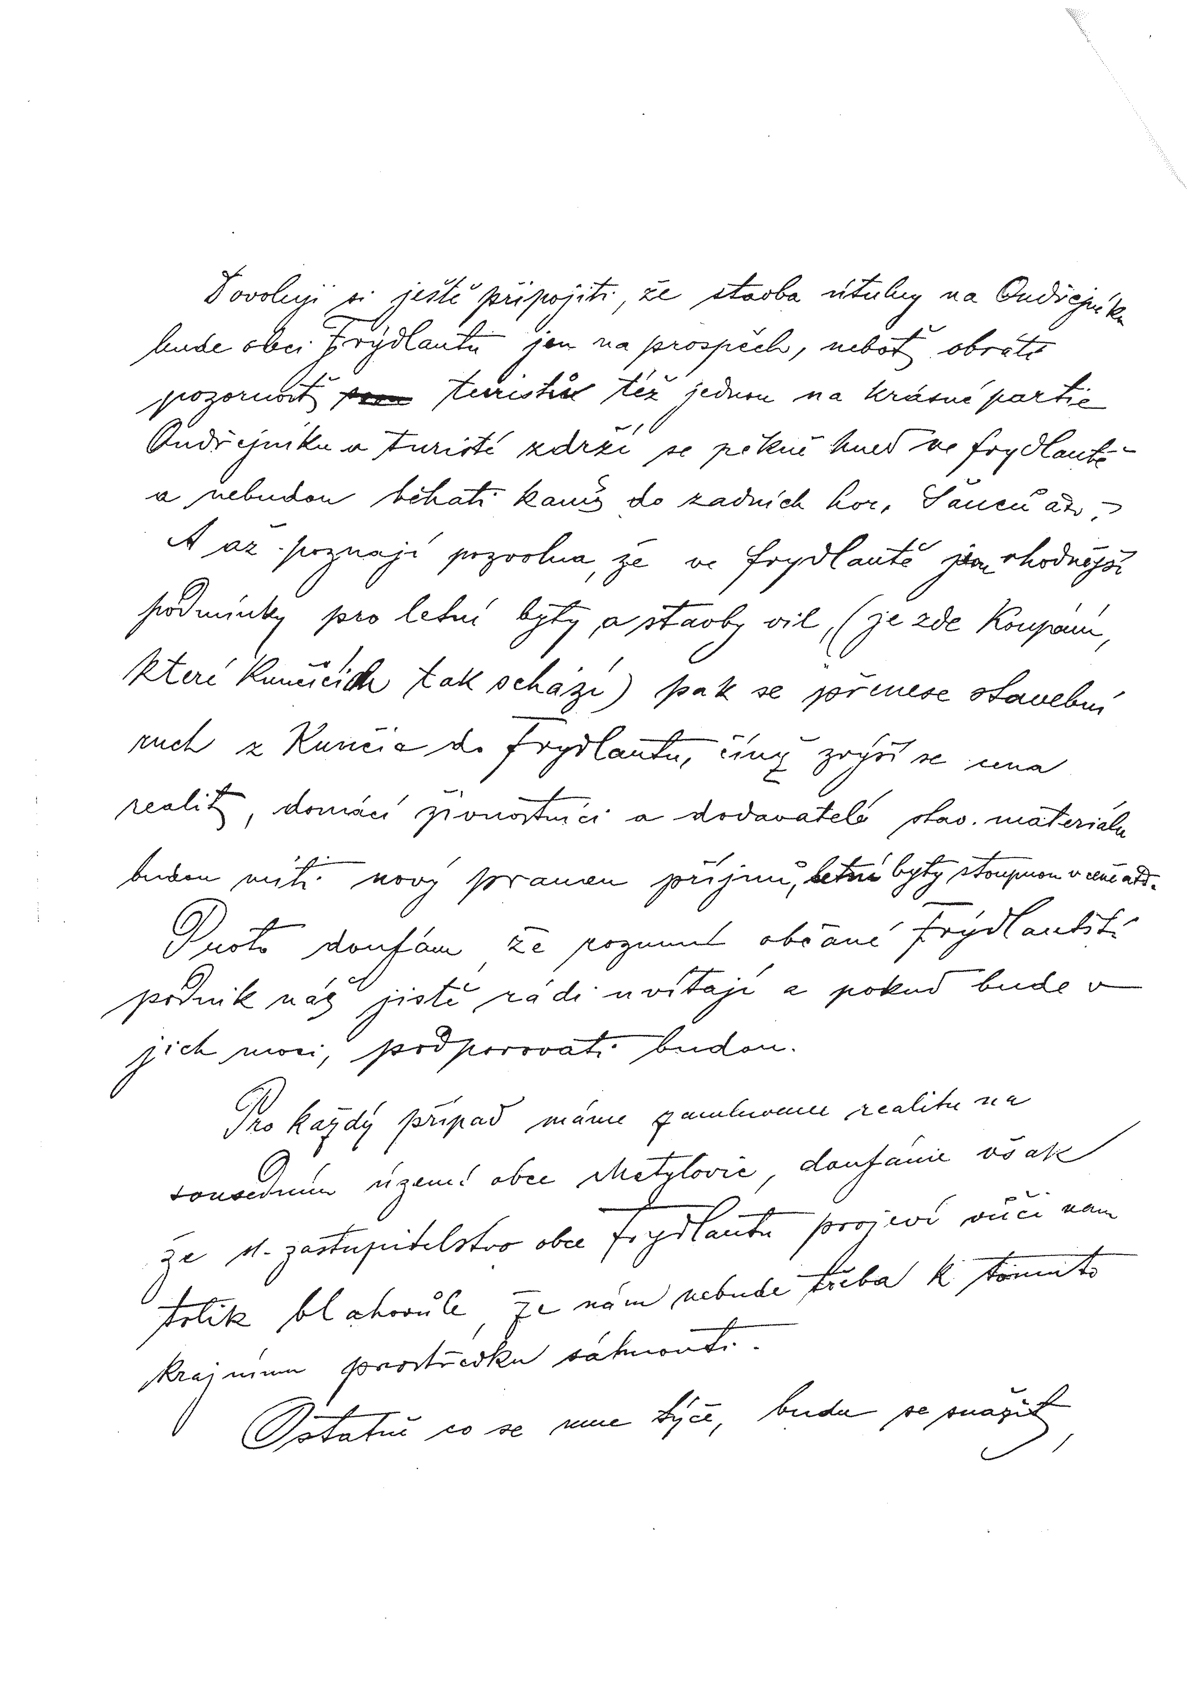 Dovoluji si ještě připojiti, že stavba útulny na Ondřejníku
bude obci Frýdlantu jen na prospěch, neboť obrátí
pozornosť turistů též jednou na krásné partie
Ondřejníku a turisté zdrží se pěkně hned ve Frydlantě
a nebudou běhati kamś do zadních hor, Šanců atd.
A až poznají pozvolna, že ve Frydlantě jsou vhodnější
podmínky pro letní byty a stavby vil, (je zde Koupání,
které Kunčicích tak schází) pak se přenese stavební
ruch z Kunčic do Frydlantu, čímž zvýší se cena
realit, domácí živnostníci a dodavatelé stav. materiálu
budou míti nový pramen příjmů, letní byty stoupnou v ceně atd.
Proto doufám že rozumní občané Frýdlantští
podnik náš jistě rádi uvítají a pokud bude v
jich moci, podporovati budou.
Pro každý případ máme zamluvenu realitu na
sousedním území obce Metylovic, doufáme však
že sl. zastupitelstvo obce Frydlantu projeví vůči nam
tolik blahovůle, že nám nebude třeba k tomuto
krajnímu prostředku sáhnouti.
Ostatně co se mne týče, budu se snažit,